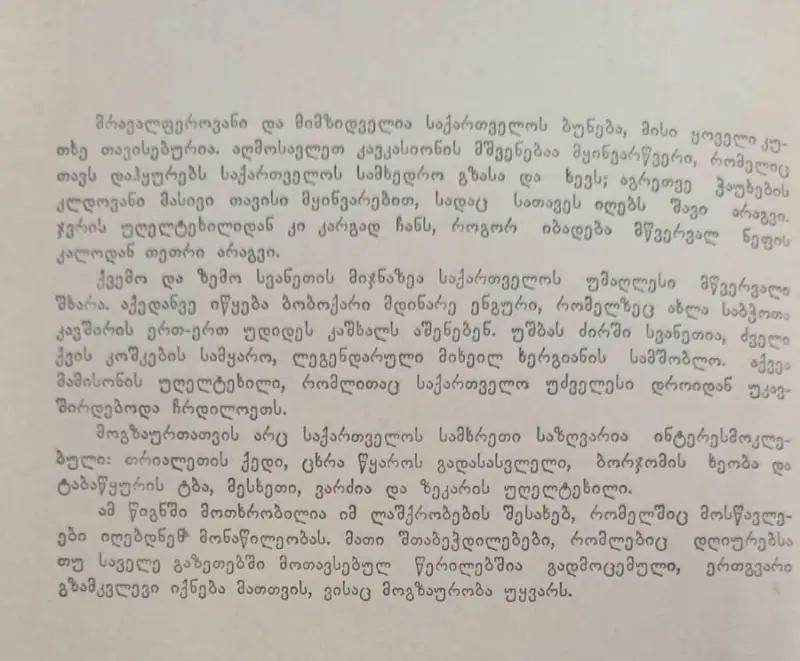 მრავალფეროვანი და მიმზიდველია საქართველოს ბუნება, მისი ყოველი კუ-
თხე თავისებურია. აღმოსავლეთ კავკასიონის მშვენებაა მყინვარწვერი, რომელიც
თავს დაჰყურებს საქართველოს სამხედრო გზასა და ხევს; აგრეთვე ჭაუხების
კლდოვანი მასივი თავისი მყინვარებით, სადაც სათავეს იღებს შავი არაგვი.
ჯვრის უღელტეხილიდან კი კარგად ჩანს, როგორ იბადება მწვერვალ ნეფის
კალოდან თეთრი არაგვი.
ქვემო და ზემო სვანეთის მიჯნაზეა საქართველოს უმაღლესი მწვერვალი
შხარა. აქედანვე იწყება ბობოქარი მდინარე ენგური, რომელზეც ახლა საბჭოთა
კავშირის ერთ-ერთ უდიდეს კაშხალს აშენებენ. უშბას ძირში სვანეთია, ძველი
ქვის კოშკების სამყარო, ლეგენდარული მიხეილ ხერგიანის სამშობლო. აქვეა
მამისონის უღელტეხილი, რომლითაც საქართველო უძველესი დროიდან უკავ-
შირდებოდა ჩრდილოეთს.
მოგზაურთათვის არც საქართველოს სამხრეთი საზღვარია ინტერესმოკლე-
ბული: თრიალეთის ქედი, ცხრა წყაროს გადასასვლელი, ბორჯომის ხეობა და
ტაბაწყურის ტბა, მესხეთი, ვარძია და ზეკარის უღელტეხილი.
ამ წიგნში მოთხრობილია იმ ლაშქრობების შესახებ, რომელშიც მოსწავლე-
ები იღებდნენ მონაწილეობას. მათი შთაბეჭდილებები, რომლებიც დღიურებსა
თუ საველე გაზეთებში მოთავსებულ წერილებშია გადმოცემული, ერთგვარი
გზამკვლევი იქნება მათთვის, ვისაც მოგზაურობა უყვარს.